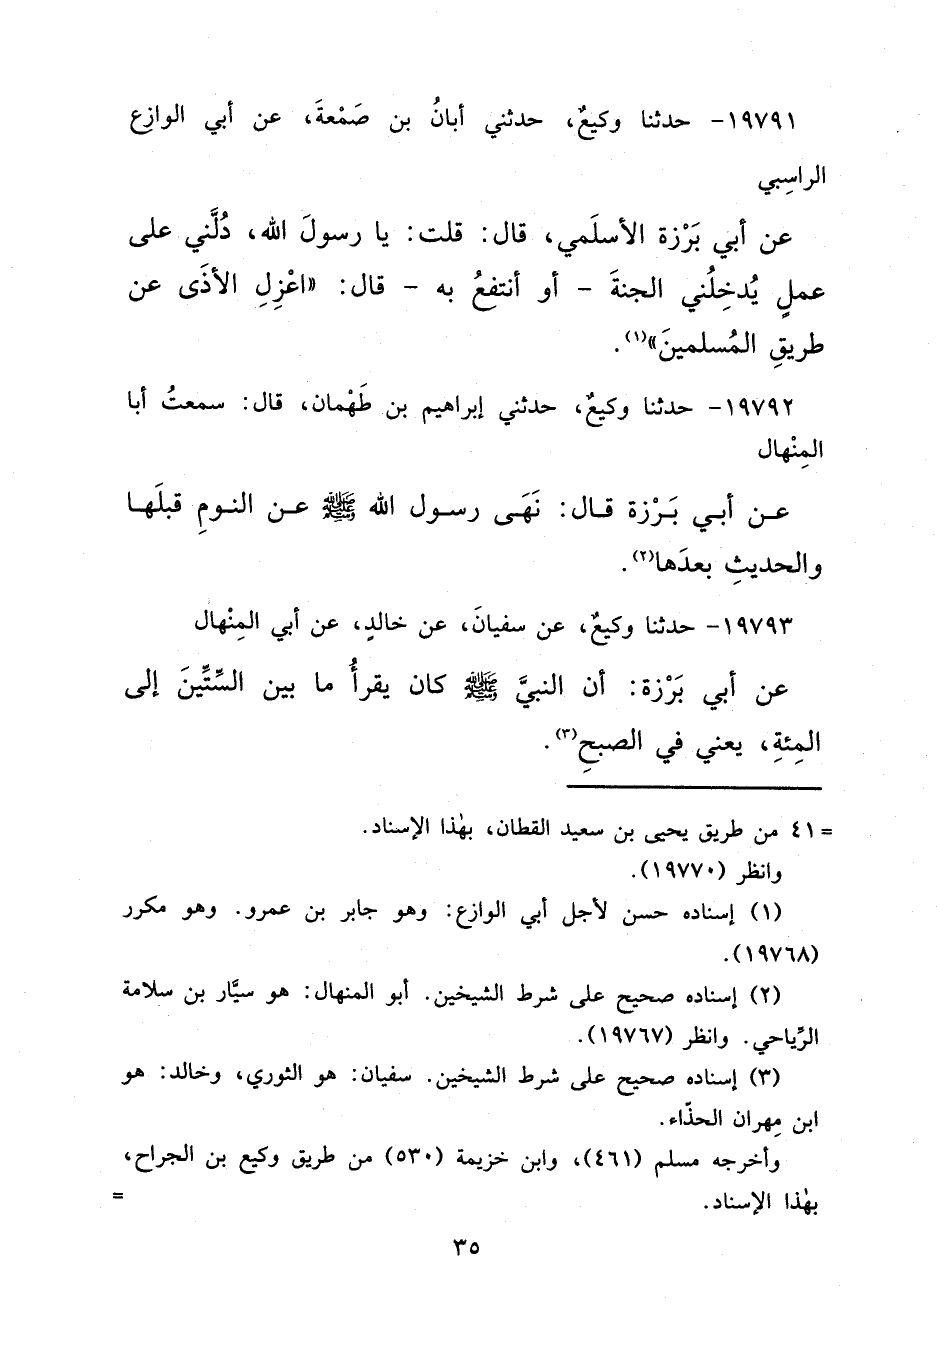 ١٩٧٩١- حدثنا وكيعٌ، حدثني أبانُ بن صَمْعةَ، عن أبي الوازِع
الراسِبي
عن أبي بَرْزة الأسلَمي، قال: قلت: يا رسولَ الله، دُلَّني على
عملٍ يُدخِلُني الجنةَ - أو أنتفعُ به - قال: «اعْزِلِ الأذَى عن
طريقِ المُسلمينَ»(١).
١٩٧٩٢- حدثنا وكيعٌ، حدثني إبراهيم بن طَهْمان، قال: سمعتُ أبا
المِنْهال
عن أبي بَرْزة قال: نَهَى رسول الله ﷺ عن النومِ قبلَها
والحديثِ بعدَها(٢).
١٩٧٩٣- حدثنا وكيعٌ، عن سفيانَ، عن خالدٍ، عن أبي المِنْهال
عن أبي بَرْزة: أن النبيَّ ﷺ كان يقرأُ ما بين السِّتِّينَ إلى
المِئةِ، يعني في الصبحِ(٣).
= ٤١ من طريق يحيى بن سعيد القطان، بهٰذا الإسناد.
وانظر (١٩٧٧٠).
(١) إسناده حسن لأجل أبي الوازع: وهو جابر بن عمرو. وهو مكرر
(١٩٧٦٨).
(٢) إسناده صحيح على شرط الشيخين. أبو المنهال: هو سيَّار بن سلامة
الرِّياحي. وانظر (١٩٧٦٧).
(٣) إسناده صحيح على شرط الشيخين. سفيان: هو الثوري، وخالد: هو
ابن مِهران الحذّاء.
وأخرجه مسلم (٤٦١)، وابن خزيمة (٥٣٠) من طريق وكيع بن الجراح،
بهٰذا الإسناد. =
٣٥